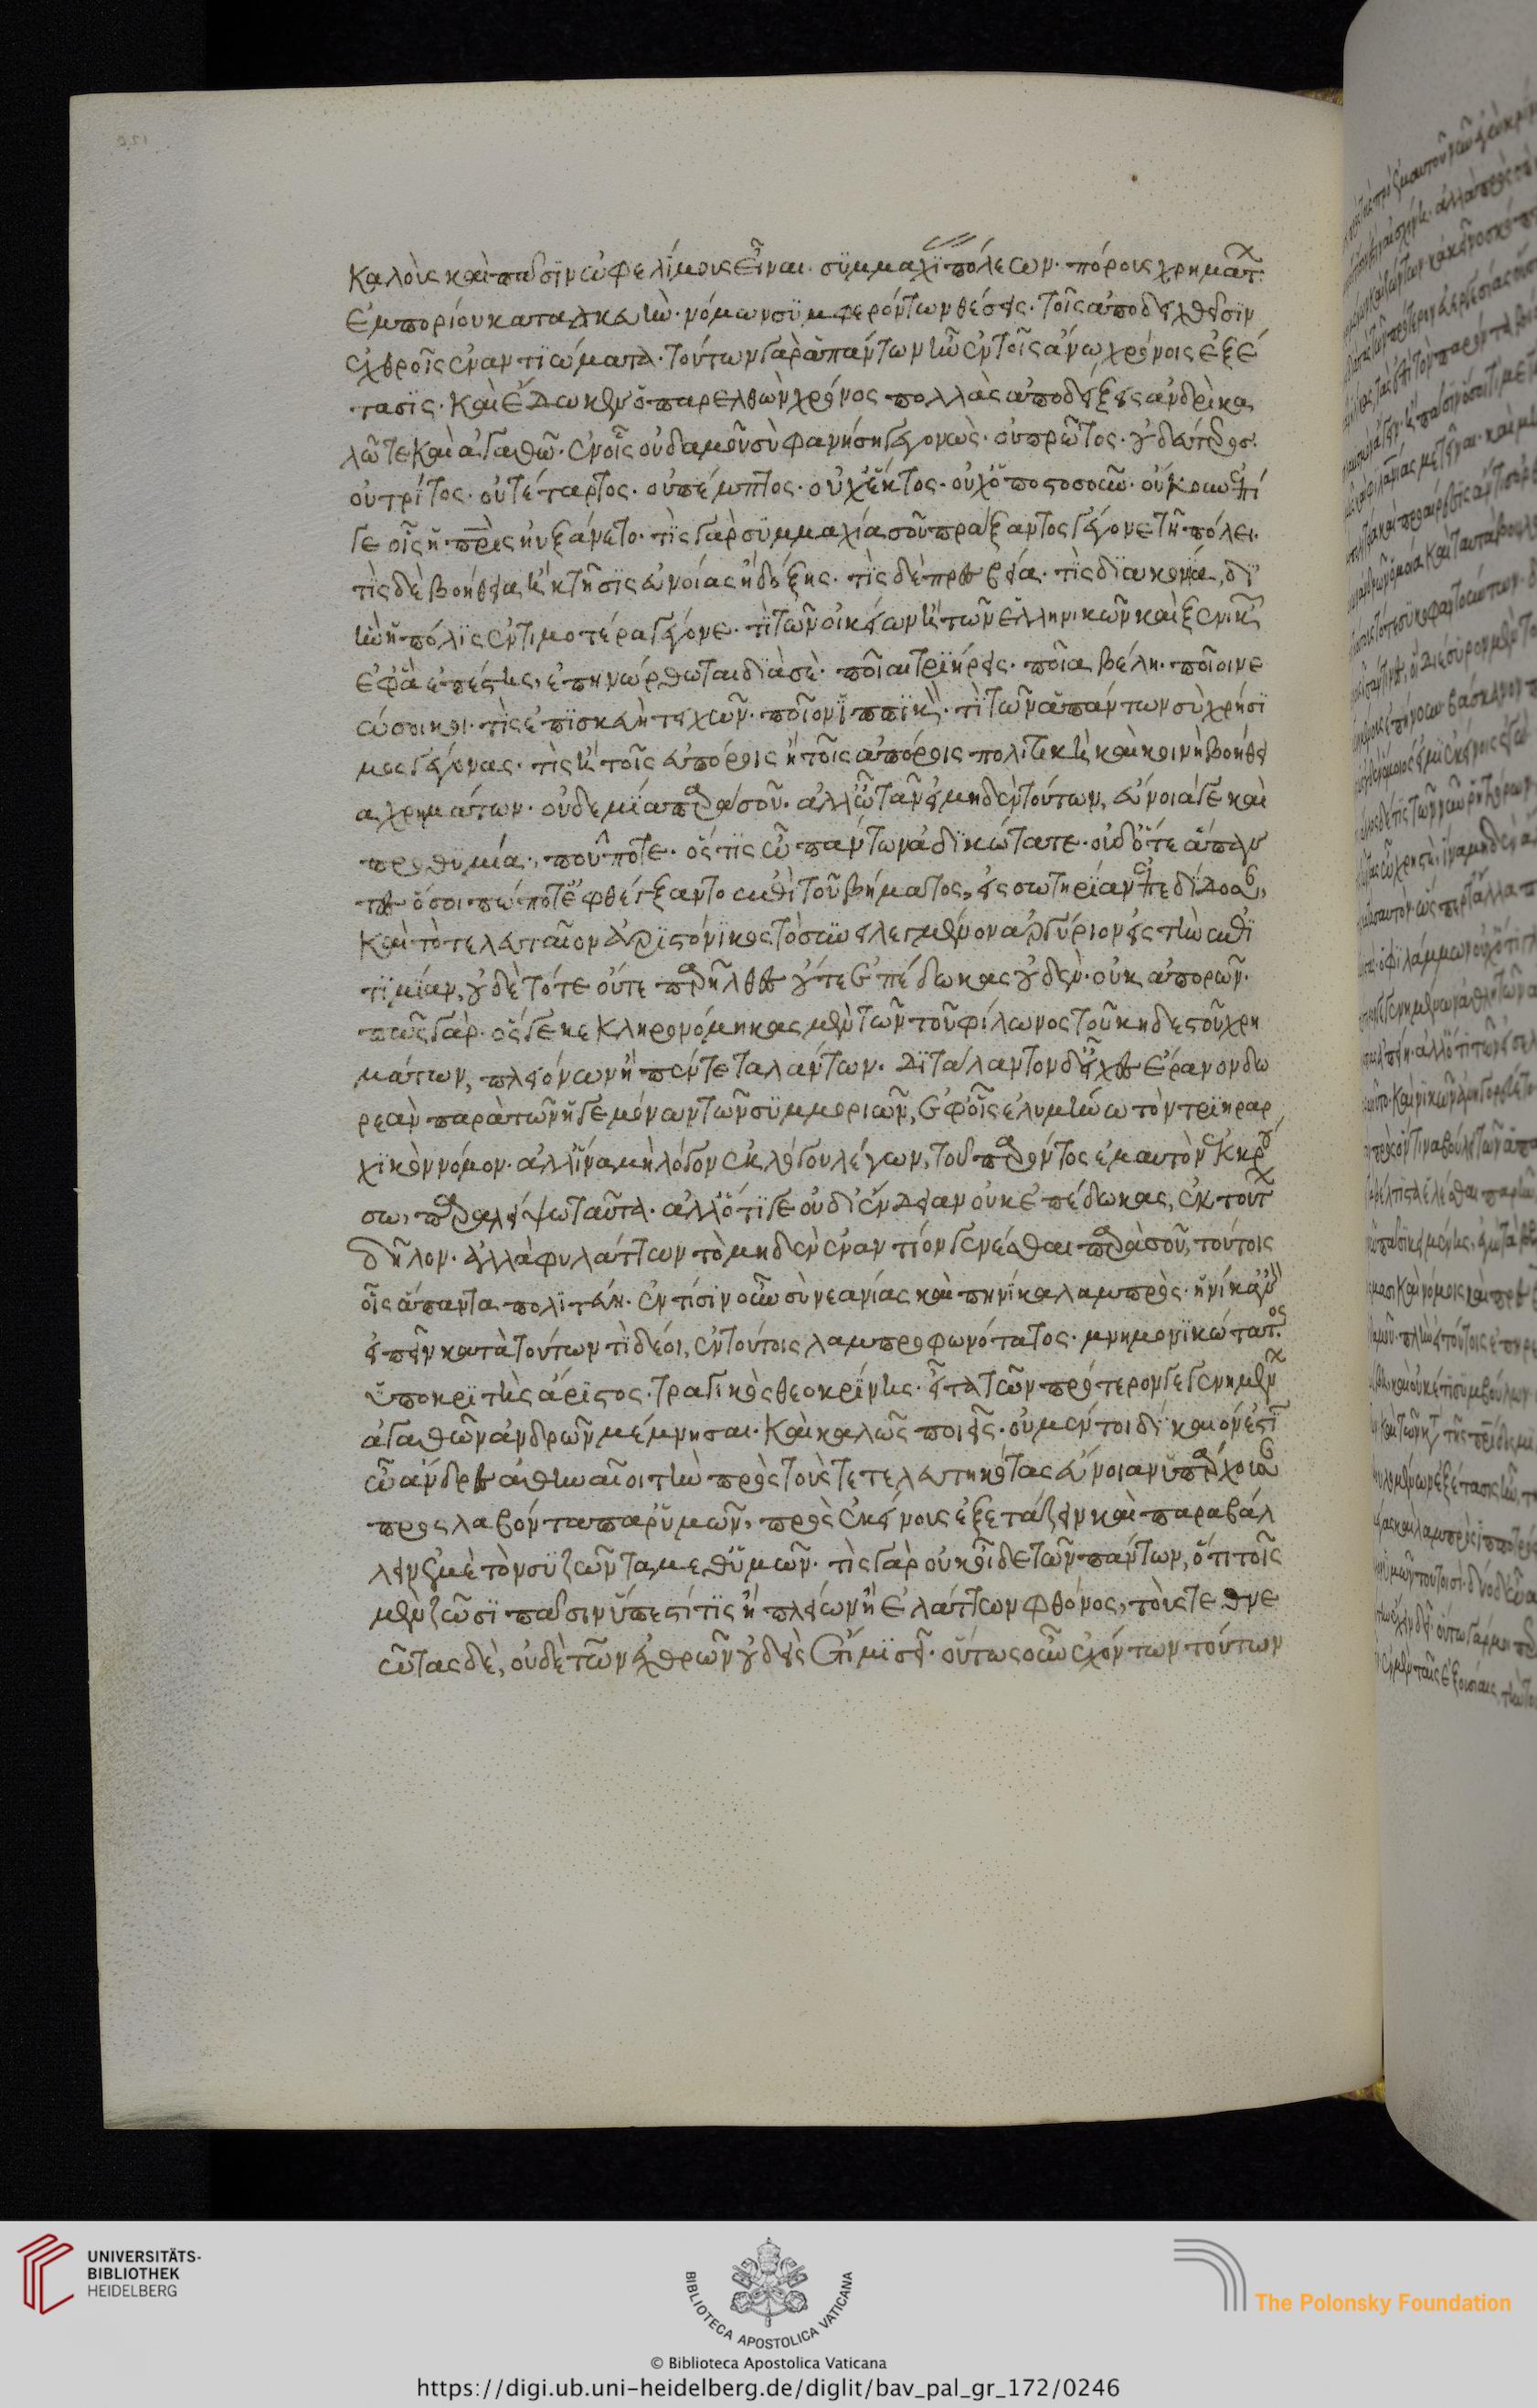 καλοῖς καὶ πᾶσϊν ὠφελίμοις εἶναι· συμμαχϊ πόλεων· πόρους χρημάτ·
ἐμπορίου κατασκευὴν· νόμων συμφερόντων θέσεις· τοῖς ἀποδειχθεῖσϊν
ἐχθροῖς ἐναντϊώματα· τούτων γὰρ ἁπάντων ἦν ἐν τοῖς ἄνω χρόνοις ἐξέ
τασϊς· καὶ ἔδωκεν ὁ παρελθὼν χρόνος πολλὰς ἀποδείξεις ἀνδρὶ κα
λῶ τε καὶ ἀγαθῶ· ἐν οἷς οὐδαμοῦ σὺ φανήσῃ γεγονὼς· οὐ πρῶτος· οὐ δεύτερος·
οὐ τρίτος· οὐ τέταρτος· οὐ πέμπτος· οὐχ ἕκτος· οὐχ ὁποστοσοῦν· οὔκουν ἐπί
γε οἷς ἡ πρὶς ηὐξάνετο· τὶς γὰρ συμμαχία σοῦ πράξαντος γέγονε τῆ πόλει·
τὶς δὲ βοήθεια ἢ κτῆσϊς εὐνοίας ἢ δόξης· τὶς δὲ πρεσβεία· τὶς διακονία, δι'
ἣν ἡ πόλϊς ἐντιμοτέρα γέγονε· τὶ τῶν οἰκείων ἢ τῶν ἑλληνικῶν καὶ ξενικῶν
ἐφ' ἃ ἐπέστης, ἐπηνώρθωται διὰ σὲ· ποῖαι τρϊήρεις· ποῖα βέλη· ποῖοι νε
ώσοικοι· τὶς ἐπϊσκευὴ τειχῶν· ποῖον ἱππϊκὸν· τὶ τῶν ἁπάντων σὺ χρήσϊ
μος γέγονας· τὶς ἢ τοῖς εὐπόροις ἢ τοῖς ἀπόροις πολϊτικὴ καὶ κοινὴ βοήθει
α χρημάτων· οὐδεμία παρὰ σοῦ· ἀλλ' ὦ τᾶν εἰ μηδὲν τούτων, εὔνοιά γε καὶ
προθυμία, ποῦ πότε· ὅς τϊς ὦ πάντων ἀδϊκώτατε· οὐδ' ὅτε ἅπαν
τες ὅσοι πώποτ' ἐφθέγξαντο ἐπὶ τοῦ βήματος, εἰς σωτηρίαν ἐπεδίδοσαν,
καὶ τὸ τελευταῖον ἀρϊστόνϊκος τὸ συνειλεγμένον ἀργύριον εἰς τὴν ἐπϊ
τϊμίαν, οὐδὲ τότε οὔτε παρῆλθες οὔτε ἐπέδωκας οὐδὲν· οὐκ ἀπορῶν·
πῶς γὰρ· ὅς γε κεκληρονόμηκας μὲν τῶν τοῦ φίλωνος τοῦ κηδεστοῦ χρη
μάτων, πλειόνων ἢ πέντε ταλάντων. διτάλαντον δ' εἶχες ἔρανον δω
ρεὰν παρὰ τῶν ἡγεμόνων τῶν συμμοριῶν, ἐφ' οἷς ἐλυμήνω τὸν τρϊηραρ
χϊκὸν νόμον· ἀλλ' ἵνα μὴ λόγον ἐκ λόγου λέγων, τοῦ παρόντος ἐμαυτὸν ἐκκρού
σω, παραλείψω ταῦτα· ἀλλ' ὅτϊ γε οὐδϊ' ἔνδειαν οὐκ ἐπέδωκας, ἐκ τούτ
δῆλον. ἀλλὰ φυλάττων τὸ μηδὲν ἐναντίον γενέσθαι παρὰ σοῦ, τούτοις
οἷς ἅπαντα πολϊτεύῃ· ἐν τίσϊν οὖν σὺ νεανίας καὶ πηνίκα λαμπρὸς· ἡνίκ' ἂν
εἰπεῖν κατὰ τούτων τὶ δέοι, ἐν τούτοις λαμπροφωνότατος· μνημονϊκώτατος·
ὑποκρϊτὴς ἄριστος· τραγικὸς θεοκρίνης· εἶτα τῶν πρότερον γεγενημέν
ἀγαθῶν ἀνδρῶν μέμνησαι· καὶ καλῶς ποιεῖς· οὐ μέντοι δίκαιόν ἐστϊ
ὦ ἄνδρες ἀθηναῖοι τὴν πρὸς τοὺς τετελευτηκότας εὔνοιαν ὑπάρχουσαν
προσλαβόντα παρ' ὑμῶν, πρὸς ἐκείνους ἐξετάζειν καὶ παραβάλ
λειν ἐμὲ τὸν συζῶντα μεθ' ὑμῶν· τὶς γὰρ οὐκ οἶδε τῶν πάντων, ὅτι τοῖς
μὲν ζῶσϊ πᾶσιν ὕπεστί τϊς ἢ πλείων ἢ ἐλάττων φθόνος, τοὺς τεθνε
ῶτας δὲ, οὐδὲ τῶν ἐχθρῶν οὐδεὶς ἔτι μϊσεῖ· οὕτως οὖν ἐχόντων τούτων
UNIVERSITÄTS-
BIBLIOTHEK
HEIDELBERG
BIBLIOTECA APOSTOLICA VATICANA
The Polonsky Foundation
© Biblioteca Apostolica Vaticana
https://digi.ub.uni-heidelberg.de/diglit/bav_pal_gr_172/0246